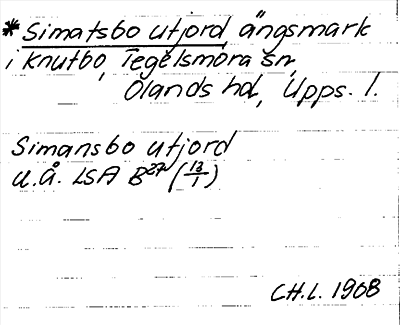 *Simatsbo utjord, ängsmark
i Knutbo, Tegelsmora sn,
Olands hd, Upps. l.
Simansbo utjord
u.å. LSA B27 (13/1)
CH.L. 1968